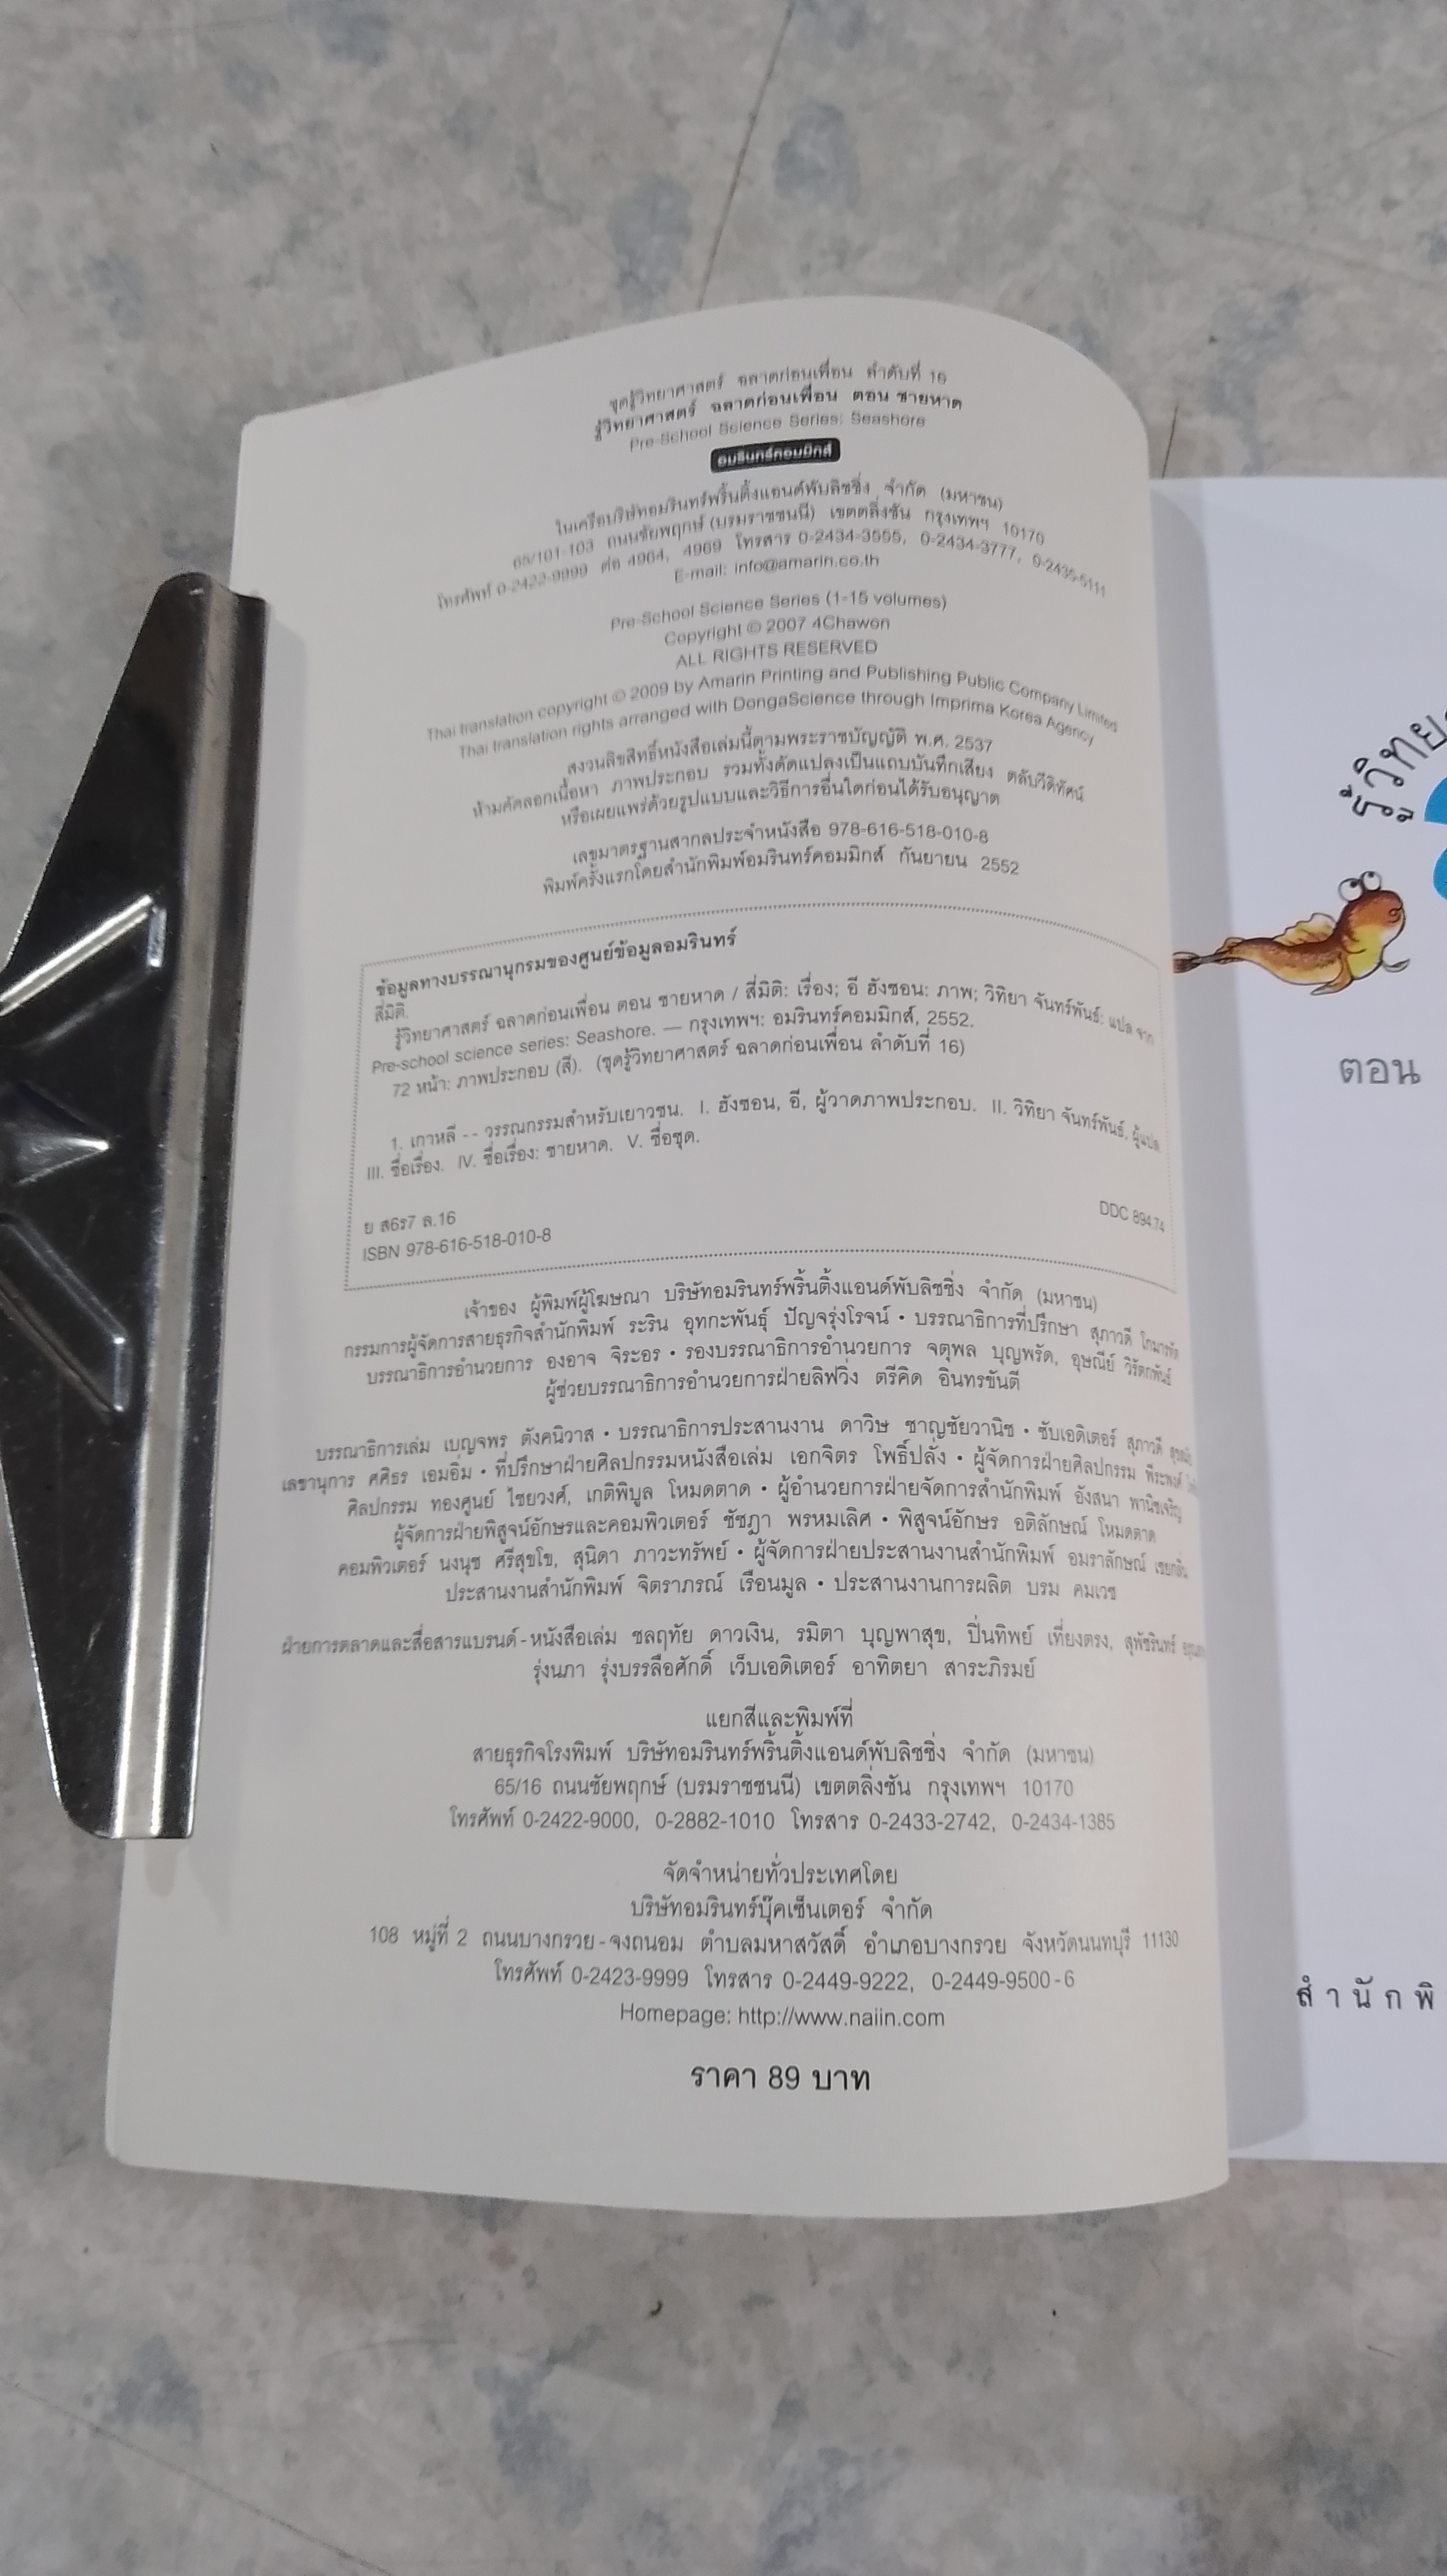 ชุดรู้วิทยาศาสตร์ ฉลาดก่อนเพื่อน ลำดับที่ 16
รู้วิทยาศาสตร์ ฉลาดก่อนเพื่อน ตอน ชายหาด
Pre-School Science Series: Seashore
อมรินทร์คอมมิกส์
ในเครือบริษัทอมรินทร์พริ้นติ้งแอนด์พับลิชชิ่ง จำกัด (มหาชน)
65/101-103 ถนนชัยพฤกษ์ (บรมราชชนนี) เขตตลิ่งชัน กรุงเทพฯ 10170
โทรศัพท์ 0-2422-9999 ต่อ 4964, 4969 โทรสาร 0-2434-3555, 0-2434-3777, 0-2435-5111
E-mail: info@amarin.co.th
Pre-School Science Series (1-15 volumes)
Copyright © 2007 4Chawon
ALL RIGHTS RESERVED
Thai translation copyright © 2009 by Amarin Printing and Publishing Public Company Limited
Thai translation rights arranged with DongaScience through Imprima Korea Agency
สงวนลิขสิทธิ์หนังสือเล่มนี้ตามพระราชบัญญัติ พ.ศ. 2537
ห้ามคัดลอกเนื้อหา ภาพประกอบ รวมทั้งดัดแปลงเป็นแถบบันทึกเสียง ตลับวีดิทัศน์
หรือเผยแพร่ด้วยรูปแบบและวิธีการอื่นใดก่อนได้รับอนุญาต
เลขมาตรฐานสากลประจำหนังสือ 978-616-518-010-8
พิมพ์ครั้งแรกโดยสำนักพิมพ์อมรินทร์คอมมิกส์ กันยายน 2552
ข้อมูลทางบรรณานุกรมของศูนย์ข้อมูลอมรินทร์
สี่มิติ.
รู้วิทยาศาสตร์ ฉลาดก่อนเพื่อน ตอน ชายหาด / สี่มิติ: เรื่อง; อี ฮังซอน: ภาพ; วิทิยา จันทร์พันธ์: แปล จาก
Pre-school science series: Seashore. — กรุงเทพฯ: อมรินทร์คอมมิกส์, 2552.
72 หน้า: ภาพประกอบ (สี). (ชุดรู้วิทยาศาสตร์ ฉลาดก่อนเพื่อน ลำดับที่ 16)
1. เกาหลี -- วรรณกรรมสำหรับเยาวชน. I. ฮังซอน, อี, ผู้วาดภาพประกอบ. II. วิทิยา จันทร์พันธ์, ผู้แปล.
III. ชื่อเรื่อง. IV. ชื่อเรื่อง: ชายหาด. V. ชื่อชุด.
ย ส6ร7 ล.16
DDC 894.74
ISBN 978-616-518-010-8
เจ้าของ ผู้พิมพ์ผู้โฆษณา บริษัทอมรินทร์พริ้นติ้งแอนด์พับลิชชิ่ง จำกัด (มหาชน)
กรรมการผู้จัดการสายธุรกิจสำนักพิมพ์ ระริน อุทกะพันธุ์ ปัญจรุ่งโรจน์ • บรรณาธิการที่ปรึกษา สุภาวดี โกมารทัต
บรรณาธิการอำนวยการ องอาจ จิระอร • รองบรรณาธิการอำนวยการ จตุพล บุญพรัด, อุษณีย์ วิรัตกพันธ์
ผู้ช่วยบรรณาธิการอำนวยการฝ่ายลิฟวิ่ง ตรีคิด อินทรขันตี
บรรณาธิการเล่ม เบญจพร ตังคนิวาส • บรรณาธิการประสานงาน ดาวิษ ชาญชัยวานิช • ซับเอดิเตอร์ สุภาวดี
เลขานุการ ศศิธร เอมอิ่ม • ที่ปรึกษาฝ่ายศิลปกรรมหนังสือเล่ม เอกจิตร โพธิ์ปลั่ง • ผู้จัดการฝ่ายศิลปกรรม พีระพงศ์
ศิลปกรรม ทองศูนย์ ไชยวงศ์, เกติพิบูล โหมดตาด • ผู้อำนวยการฝ่ายจัดการสำนักพิมพ์ อังสนา พานิชเจริญ
ผู้จัดการฝ่ายพิสูจน์อักษรและคอมพิวเตอร์ ชัชฎา พรหมเลิศ • พิสูจน์อักษร อติลักษณ์ โหมดตาด
คอมพิวเตอร์ นงนุช ศรีสุขโข, สุนิดา ภาวะทรัพย์ • ผู้จัดการฝ่ายประสานงานสำนักพิมพ์ อมราลักษณ์
ประสานงานสำนักพิมพ์ จิตราภรณ์ เรือนมูล • ประสานงานการผลิต บรม คมเวช
ฝ่ายการตลาดและสื่อสารแบรนด์-หนังสือเล่ม ชลฤทัย ดาวเงิน, รมิตา บุญพาสุข, ปิ่นทิพย์ เที่ยงตรง, สุพัชรินทร์
รุ่งนภา รุ่งบรรลือศักดิ์ เว็บเอดิเตอร์ อาทิตยา สาระภิรมย์
แยกสีและพิมพ์ที่
สายธุรกิจโรงพิมพ์ บริษัทอมรินทร์พริ้นติ้งแอนด์พับลิชชิ่ง จำกัด (มหาชน)
65/16 ถนนชัยพฤกษ์ (บรมราชชนนี) เขตตลิ่งชัน กรุงเทพฯ 10170
โทรศัพท์ 0-2422-9000, 0-2882-1010 โทรสาร 0-2433-2742, 0-2434-1385
จัดจำหน่ายทั่วประเทศโดย
บริษัทอมรินทร์บุ๊คเซ็นเตอร์ จำกัด
108 หมู่ที่ 2 ถนนบางกรวย-จงถนอม ตำบลมหาสวัสดิ์ อำเภอบางกรวย จังหวัดนนทบุรี 11130
โทรศัพท์ 0-2423-9999 โทรสาร 0-2449-9222, 0-2449-9500-6
Homepage: http://www.naiin.com
ราคา 89 บาท
รู้วิทย
ตอน
สำนักพิ